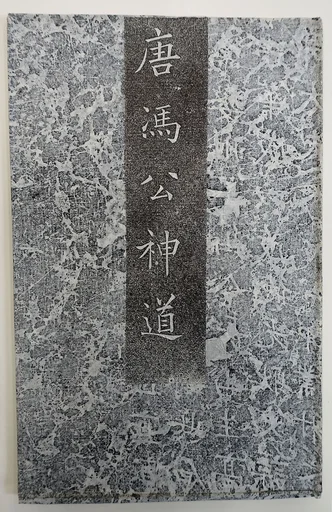 唐馮公神道